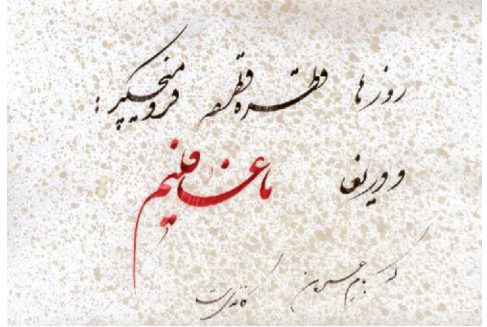 روزها قطره قطره فرو میچکد:
و دریغا ما غافلیم